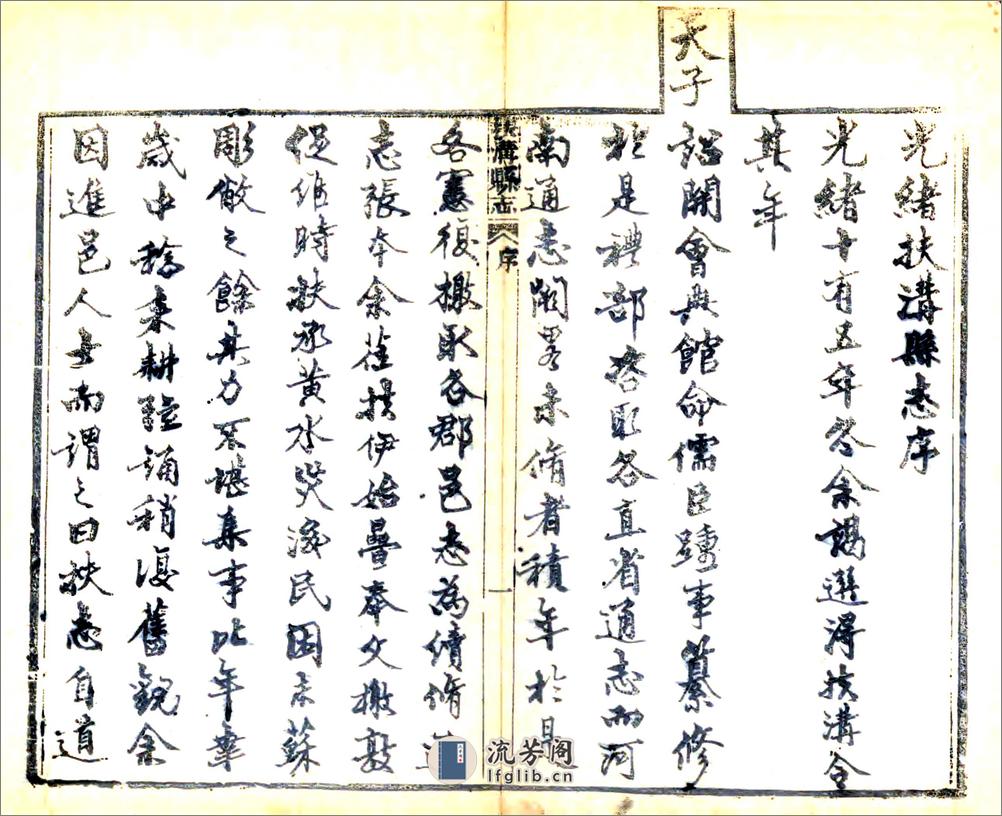 光緒扶溝縣志序
光緒十有五年冬余謁選得扶溝令
其年
天子
詔開會典館命儒臣踵事纂修
於是禮部咨取各直省通志而河
南通志闕畧未脩者積年於是
溝縣志
序
一
各憲復檄取各郡邑志為續脩
志張本余莅扶伊始曡奉文檄敦
促維時扶承黃水災後民困未蘇
彫敝之餘其力不堪集事比年
歲中稔耕誦稍復舊觀余
因進邑人士而謂之曰扶志自道
流芳阁
lfglib.cn